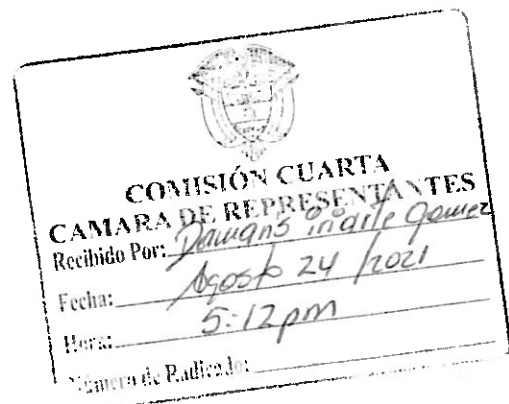 COMISIÓN CUARTA
CAMARA DE REPRESENTANTES
Recibido Por: Iriarte Gomez
Fecha: Agosto 24/2021
Hora: 5:12pm
Número de Radicado: